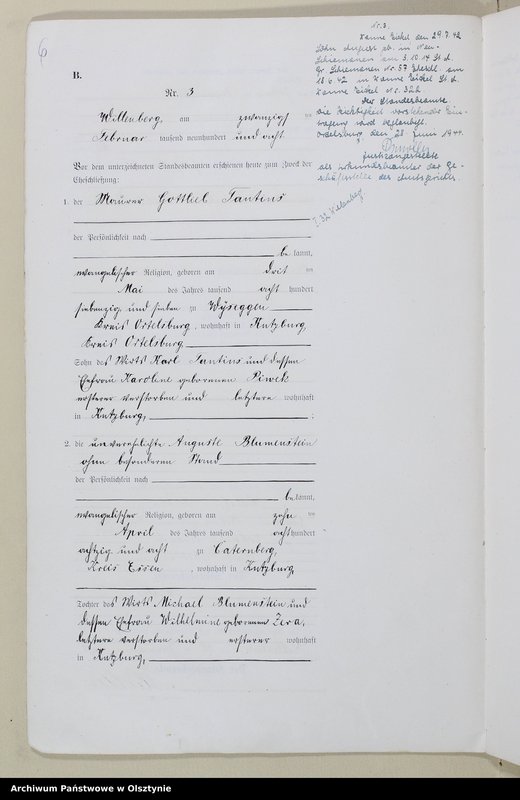 6
B.
Nr. 3
Willenberg, am zwanzigsten
Februar tausend neunhundert und acht
Vor dem unterzeichneten Standesbeamten erschienen heute zum Zweck der
Eheschließung:
1. der Maurer Gottlieb Tantius
der Persönlichkeit nach
be kannt,
evangelischer Religion, geboren am dritten
Mai des Jahres tausend acht hundert
siebenzig und sieben zu
Kreis Ortelsburg, wohnhaft in Kutzburg,
Kreis Ortelsburg
Sohn des Wirts Karl Tantius und dessen
Ehefrau Karoline geborenen Piwek
ersterer verstorben und letztere wohnhaft
in Kutzburg, ;
2. die unverehelichte Auguste Blumenstein
ohne besonderen Stand
der Persönlichkeit nach
be kannt,
evangelischer Religion, geboren am zehnten
April des Jahres tausend acht hundert
achtzig und acht zu Caternberg,
Kreis Essen, wohnhaft in Kutzburg,
Tochter des Wirts Michael Blumenstein und
dessen Ehefrau Wilhelmine geborenen Zera,
letztere verstorben und ersterer wohnhaft
in Kutzburg,
Nr. 3.
Wanne Eickel den 29.7.42
Sohn August gb. in
am 3.10.14 St. A.
Nr. 57 Eheschl. am
18.6.42 in Wanne Eickel St. A.
Wanne Eickel Nr.
Der Standesbeamte.
Die Richtigkeit vorstehender Ein-
tragung wird beglaubigt.
Ortelsburg, den 28. Juni 1944.
Justizangestellte
als Urkundsbeamter der Ge-
schäftsstelle des Amtsgerichts.
Archiwum Państwowe w Olsztynie